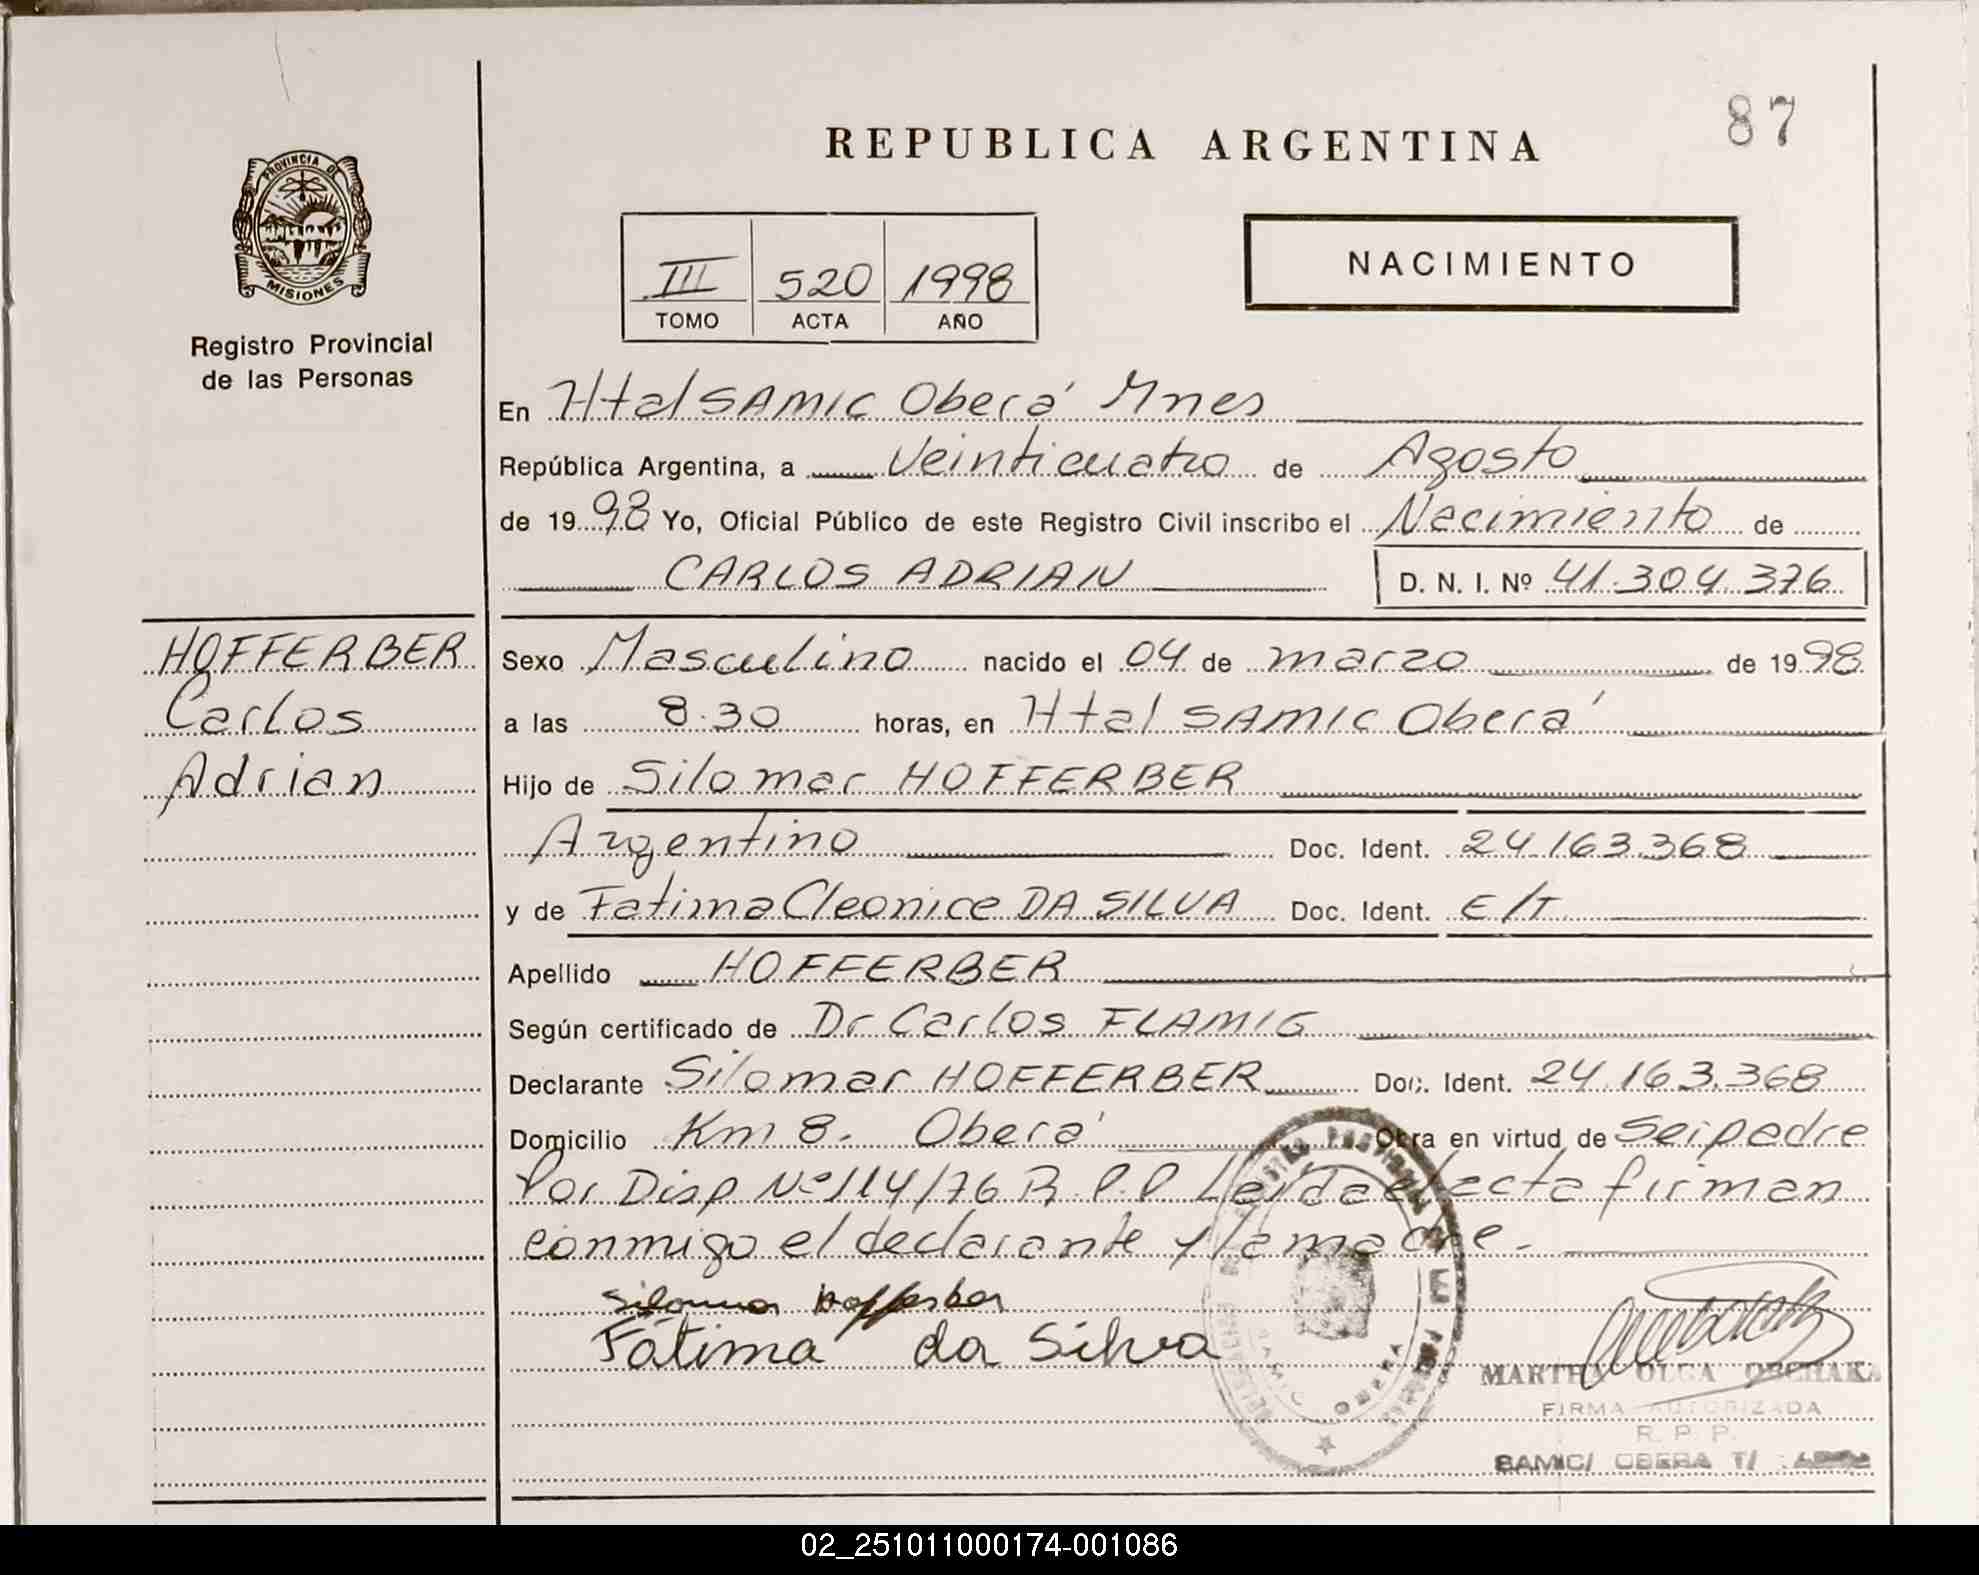 87
REPUBLICA ARGENTINA
PROVINCIA DE
MISIONES
Registro Provincial
de las Personas
III 520 1998
TOMO ACTA AÑO
NACIMIENTO
En Htal SAMIC Oberá Mnes
República Argentina, a Veinticuatro de Agosto
de 1998 Yo, Oficial Público de este Registro Civil inscribo el Nacimiento de
CARLOS ADRIAN D. N. I. Nº 41.304.376
HOFFERBER
Carlos
Adrian
Sexo Masculino nacido el 04 de marzo de 1998
a las 8.30 horas, en Htal SAMIC Oberá
Hijo de Silomar HOFFERBER
Argentino Doc. Ident. 24.163.368
y de Fatima Cleonice DA SILVA Doc. Ident. E/T
Apellido HOFFERBER
Según certificado de Dr Carlos FLAMIG
Declarante Silomar HOFFERBER Doc. Ident. 24.163.368
Domicilio Km 8. Oberá Obra en virtud de Ser padre
Por Disp Nº 114/76 R.P.P Leída el acta firman
conmigo el declarante y la madre.
Silomar Hofferber
Fátima da Silva
MARTHA OLGA
FIRMA AUTORIZADA
R. P. P.
SAMIC/ OBERA T/
02_251011000174-001086